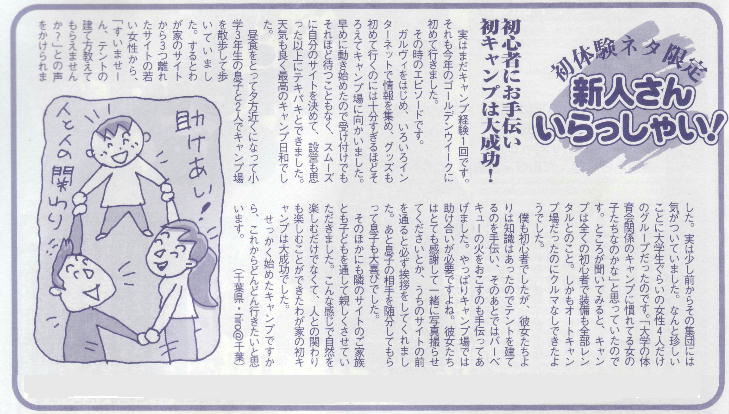 初体験ネタ限定
新人さん
いらっしゃい!
初心者にお手伝い
初キャンプは大成功!
実はまだキャンプ経験1回です。
それも今年のゴールデンウイークに
初めて行きました。
その時のエピソードです。
ガルヴィをはじめ、いろいろイン
ターネットで情報を集め、グッズも
初めて行くのには十分すぎるほどそ
ろえてキャンプ場に向かいました。
早めに動き始めたので受け付けでも
それほど待つこともなく、スムーズ
に自分のサイトを決めて、設営も思
った以上にテキパキとできました。
天気も良く最高のキャンプ日和でし
た。
昼食をとって夕方近くになって小
学3年生の息子と2人でキャンプ場
を散歩して歩
いていまし
た。するとわ
が家のサイト
から3つ離れ
たサイトの若
い女性から、
「すいませー
ん、テントの
建て方教えて
もらえません
か?」との声
をかけられま
した。実は少し前からその集団には
気がついていました。なんと珍しい
ことに大学生ぐらいの女性4人だけ
のグループだったのです。「大学の体
育会関係のキャンプに慣れてる女の
子たちなのかな」と思っていたので
す。ところが聞いてみると、キャン
プは全くの初心者で装備も全部レン
タルとのこと。しかもオートキャン
プ場だったのにクルマなしできたよ
うでした。
僕も初心者でしたが、彼女たちよ
りは知識はあったのでテントを建て
るのを手伝い、そのあとではバーベ
キューの火をおこすのも手伝ってあ
げました。やっぱりキャンプ場では
助け合いが必要ですよね。彼女たち
はとても感謝して一緒に写真撮らせ
てくださいとか、うちのサイトの前
を通ると必ず挨拶をしてくれまし
た。あと息子の相手を随分してもら
って息子も大喜びでした。
そのほかにも隣のサイトのご家族
とも子どもを通して親しくさせてい
ただきました。こんな感じで自然を
楽しむだけでなくて、人との関わり
も楽しむことができたわが家の初キ
ャンプは大成功でした。
せっかく始めたキャンプですか
ら、これからどんどん行きたいと思
います。 (千葉県・hiro@千葉)
助けあい!
人と人の関わり